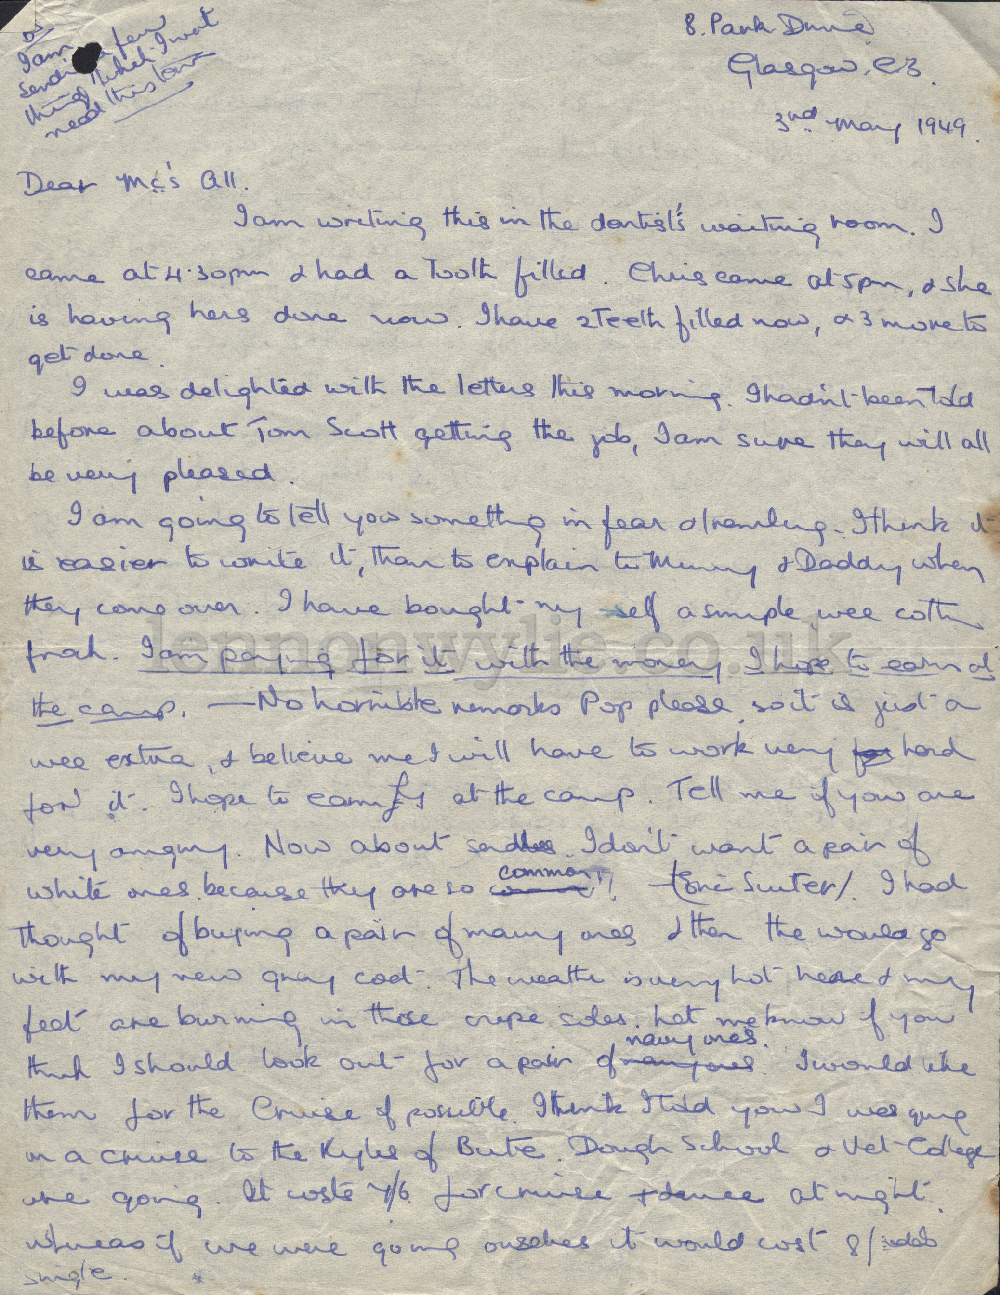 PS
I am
sending a few
things which I wont
need this term
8. Park Drive
Glasgow. C3.
3rd May 1949.
Dear Mc's All.
I am writing this in the dentist's waiting room. I
came at 4.30pm & had a Tooth filled. Chris came at 5pm, & she
is having hers done now. I have 2 Teeth filled now, & 3 more to
get done.
I was delighted with the letters this morning. I hadn't been Told
before about Tom Scott getting the job, I am sure they will all
be very pleased.
I am going to tell you something in fear & trembling. I think it
is easier to write it, than to explain to Mummy & Daddy when
they come over. I have bought my self a simple wee cotton
frock. I am paying for it with the money I hope to earn at
the camp. — No horrible remarks Pop please, so it is just a
wee extra, & believe me I will have to work very hard
for it. I hope to earn £ at the camp. Tell me if you are
very angry. Now about sandles. I don't want a pair of
white ones because they are so common!! (Eric Suiter). I had
thought of buying a pair of navy ones & then the would go
with my new gray coat. The weather is very hot here & my
feet are burning in these crepe soles. Let me know if you
think I should look out for a pair of navy ones. I would like
them for the Cruise if possible. I think I told you I was going
on a cruise to the Kyles of Bute. Dough School & Vet College
are going. It costs 7/6 for cruise & dance at night.
whereas if we were going ourselves it would cost 8/
single.
lennonwylie.co.uk